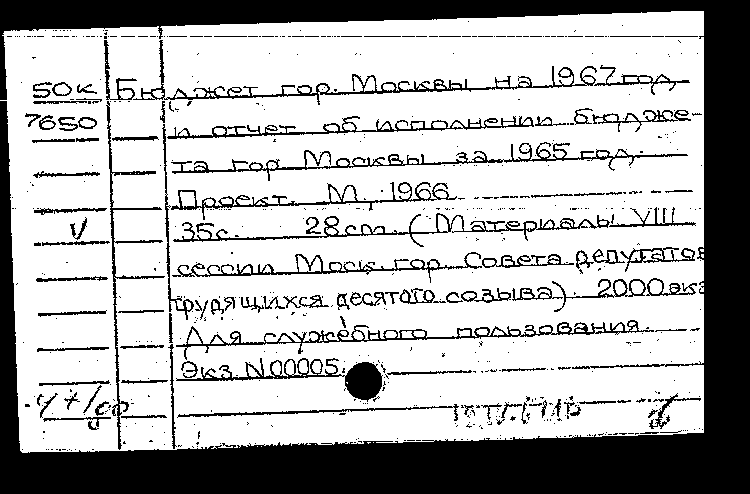 50к Бюджет гор. Москвы на 1967 год
7650 и отчет об исполнении бюдже-
та гор Москвы за 1965 год.
Проект. М., 1966
V 35с. 28см. (Материалы VIII
сессии Моск. гор. Совета депутатов
трудящихся десятого созыва). 2000 экз
Для служебного пользования.
Экз. N00005.